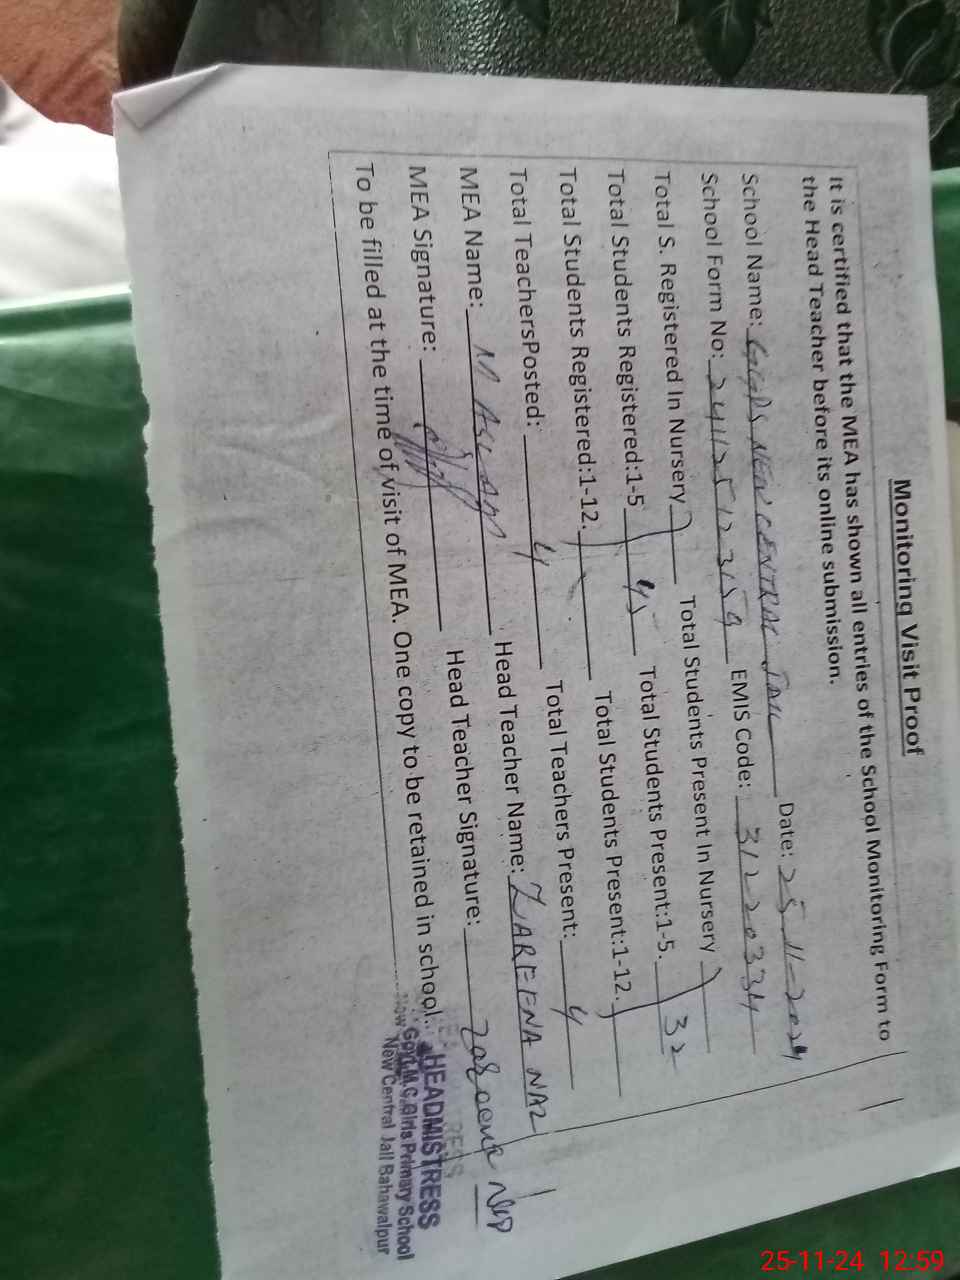 Monitoring Visit Proof
it is certified that the MEA has shown all entries of the School Monitoring Form to
the Head Teacher before its online submission.
School Name: GGPS NEW CENTRAL JAIL Date: 25-11-2024
School Form No: EMIS Code: 31220334
Total S. Registered In Nursery Total Students Present In Nursery
Total Students Registered:1-5 45 Total Students Present:1-5. 32
Total Students Registered:1-12. Total Students Present:1-12.
Total TeachersPosted: 4 Total Teachers Present: 4
MEA Name: M ASLAM Head Teacher Name: ZAREENA NAZ
MEA Signature: Head Teacher Signature: Zareena
To be filled at the time of visit of MEA. One copy to be retained in school.
HEADMISTRESS
Govt.M.C.Girls Primary School
New Central Jail Bahawalpur
25-11-24 12:59